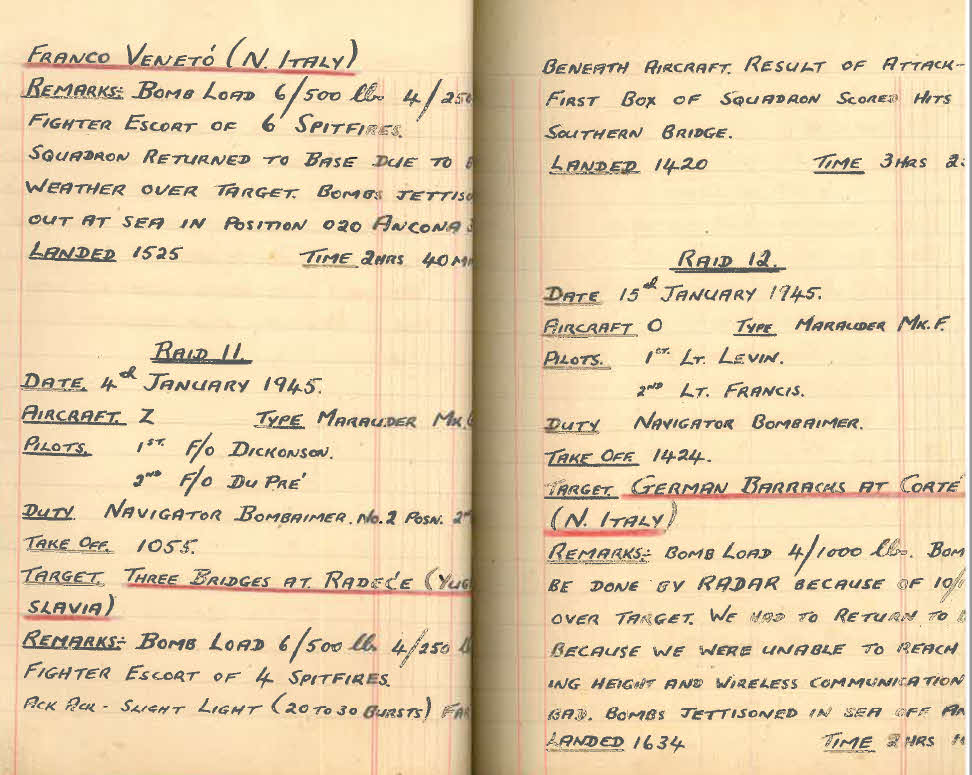 FRANCO VENETÓ (N. ITALY)
REMARKS:- BOMB LOAD 6/500 lbs 4/250
FIGHTER ESCORT OF 6 SPITFIRES.
SQUADRON RETURNED TO BASE DUE TO
WEATHER OVER TARGET. BOMBS JETTISO
OUT AT SEA IN POSITION 020 ANCONA
LANDED 1525 TIME 2HRS 40 M
RAID 11.
DATE. 4th JANUARY 1945.
AIRCRAFT. Z TYPE MARAUDER MK.
PILOTS. 1ST. F/O DICKONSON.
2ND F/O DU PRÉ
DUTY. NAVIGATOR BOMBAIMER. NO.2 POSN. 2
TAKE OFF. 1055.
TARGET. THREE BRIDGES AT RADEĆE (YUG
SLAVIA)
REMARKS:- BOMB LOAD 6/500 lbs 4/250
FIGHTER ESCORT OF 4 SPITFIRES.
ACK ACK - SLIGHT LIGHT (20 TO 30 BURSTS) FAR
BENEATH AIRCRAFT. RESULT OF ATTACK-
FIRST BOX OF SQUADRON SCORED HITS
SOUTHERN BRIDGE.
LANDED 1420 TIME 3HRS 2
RAID 12.
DATE 15th JANUARY 1945.
AIRCRAFT O TYPE MARAUDER MK.F.
PILOTS. 1ST. LT. LEVIN.
2ND LT. FRANCIS.
DUTY NAVIGATOR BOMBAIMER.
TAKE OFF. 1424.
TARGET. GERMAN BARRACKS AT CORTÉ
(N. ITALY)
REMARKS:- BOMB LOAD 4/1000 lbs. BOM
BE DONE BY RADAR BECAUSE OF 10/
OVER TARGET. WE HAD TO RETURN TO
BECAUSE WE WERE UNABLE TO REACH
ING HEIGHT AND WIRELESS COMMUNICATION
BAD. BOMBS JETTISONED IN SEA OFF AN
LANDED 1634 TIME 2 HRS